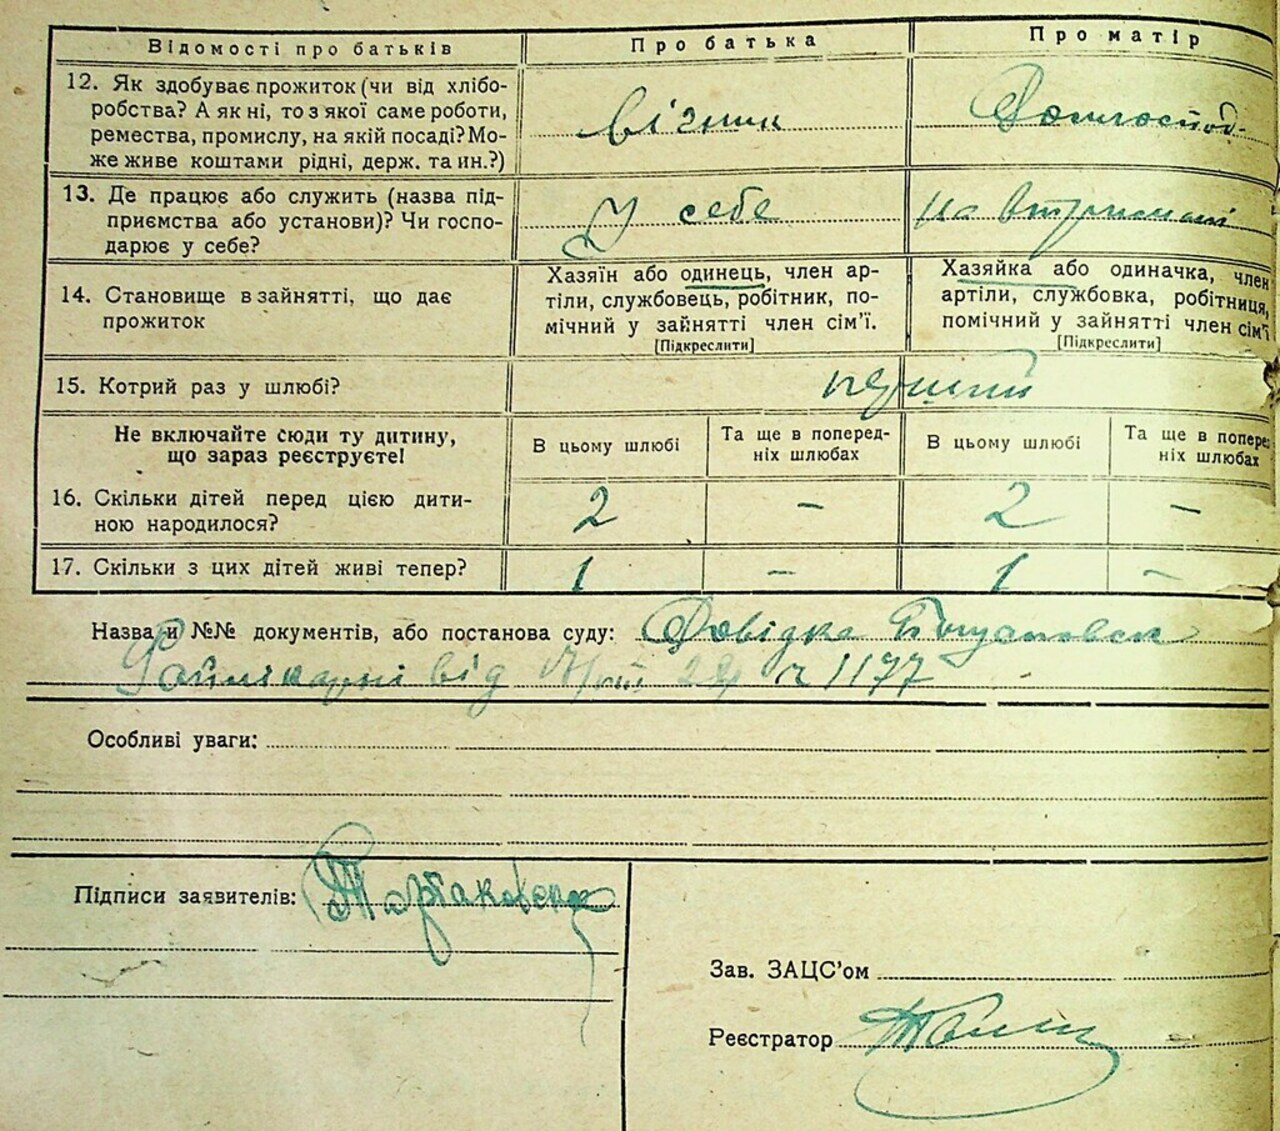 Відомості про батьків
Про батька
Про матір
12. Як здобуває прожиток (чи від хлібо-
робства? А як ні, то з якої саме роботи,
ремества, промислу, на якій посаді? Мо-
же живе коштами рідні, держ. та ин.?)
візник
Домгоспод.
13. Де працює або служить (назва під-
приємства або установи)? Чи госпо-
дарює у себе?
У себе
на втриманні
14. Становище в зайнятті, що дає
прожиток
Хазяїн або одинець, член ар-
тіли, службовець, робітник, по-
мічний у зайнятті член сім'ї.
[Підкреслити]
Хазяйка або одиначка, член
артіли, службовка, робітниця,
помічний у зайнятті член сім'ї
[Підкреслити]
15. Котрий раз у шлюбі?
перший
Не включайте сюди ту дитину,
що зараз реєструєте!
В цьому шлюбі
Та ще в поперед-
ніх шлюбах
В цьому шлюбі
Та ще в поперед
ніх шлюбах
16. Скільки дітей перед цією дити-
ною народилося?
2 – 2 –
17. Скільки з цих дітей живі тепер?
1 – 1 –
Назва и №№ документів, або постанова суду: Довідка
лікарні від 1177
Особливі уваги:
Підписи заявителів: Тартаковська
Зав. ЗАЦС'ом
Реєстратор